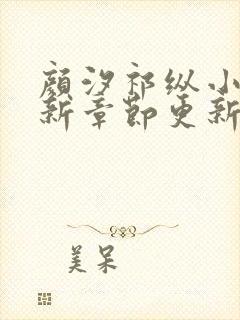 颜汐祁纵小
新章节更新
美呆